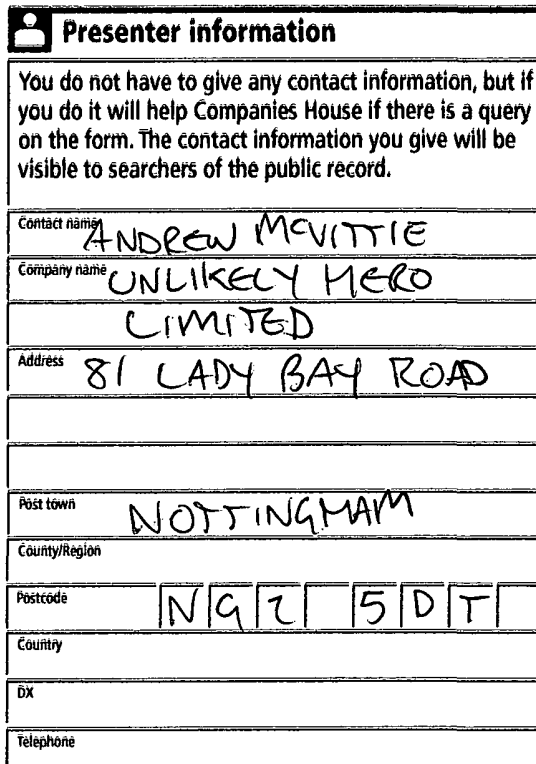 Presenter information
You do not have to give any contact information, but if
you do it will help Companies House if there is a query
on the form. The contact information you give will be
visible to searchers of the public record.
Contact name ANDREW MCVITTIE
Company name UNLIKELY HERO
LIMITED
Address 81 LADY BAY ROAD
Post town NOTTINGHAM
County/Region
Postcode NG2 5DT
Country
DX
Telephone